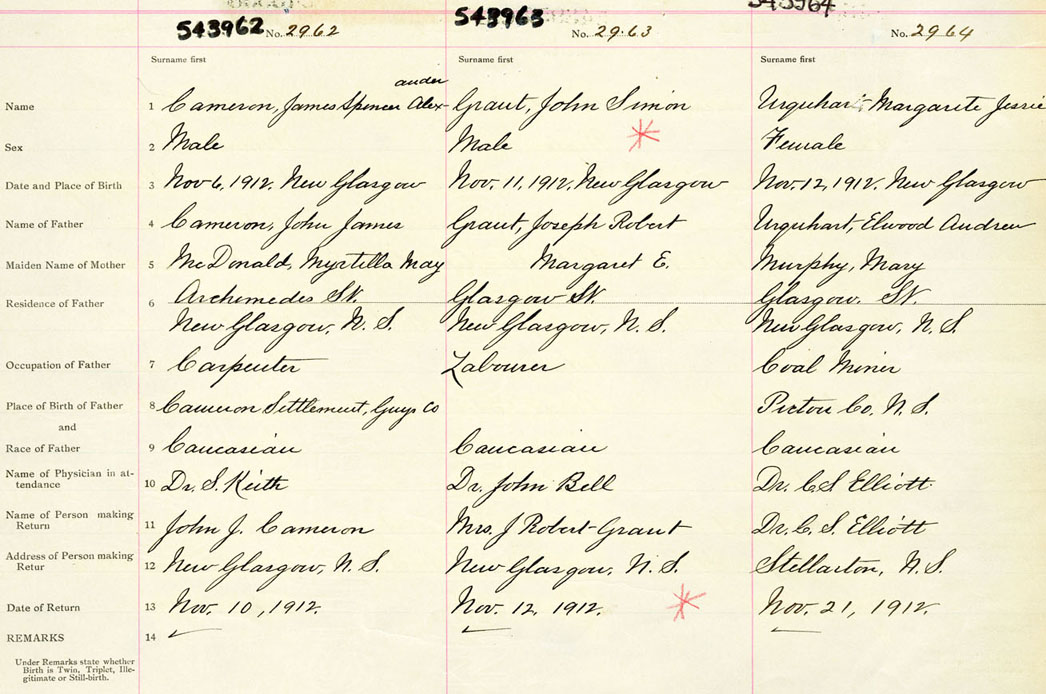 543962 No. 2962 543963 No. 2963 543964 No. 2964
Surname first Surname first Surname first
ander
Name 1 Cameron, James Spencer Alex- Grant, John Simon Urquhart, Margarete Jessie
Sex 2 Male Male Female
Date and Place of Birth 3 Nov 6, 1912. New Glasgow Nov. 11, 1912. New Glasgow Nov. 12, 1912. New Glasgow
Name of Father 4 Cameron, John James Grant, Joseph Robert Urquhart, Elwood Andrew
Maiden Name of Mother 5 McDonald, Myrtilla May Margaret E. Murphy, Mary
Residence of Father 6 Archimedes St. Glasgow St. Glasgow. St.
New Glasgow, N. S. New Glasgow, N. S. New Glasgow, N. S.
Occupation of Father 7 Carpenter Labourer Coal Miner
Place of Birth of Father 8 Cameron Settlement, Guys Co Pictou Co. N. S.
and
Race of Father 9 Caucasian Caucasian Caucasian
Name of Physician in at-
tendance 10 Dr. S. Keith Dr. John Bell Dr. C S Elliott
Name of Person making
Return 11 John J. Cameron Mrs. J Robert Grant Dr. C. S. Elliott
Address of Person making
Retur 12 New Glasgow, N. S. New Glasgow, N. S. Stellarton, N. S.
Date of Return 13 Nov. 10, 1912. Nov. 12, 1912. Nov. 21, 1912.
REMARKS 14
Under Remarks state whether
Birth is Twin, Triplet, Ille-
gitimate or Still-birth.